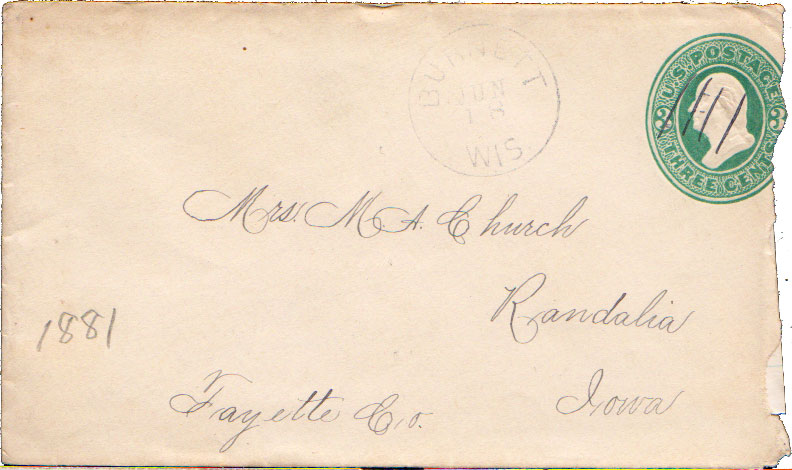 BURNETT
JUN
18
WIS.
U.S. POSTAGE
3 3
THREE CENTS
Mrs. M. A. Church
Randalia
1881
Fayette Co. Iowa